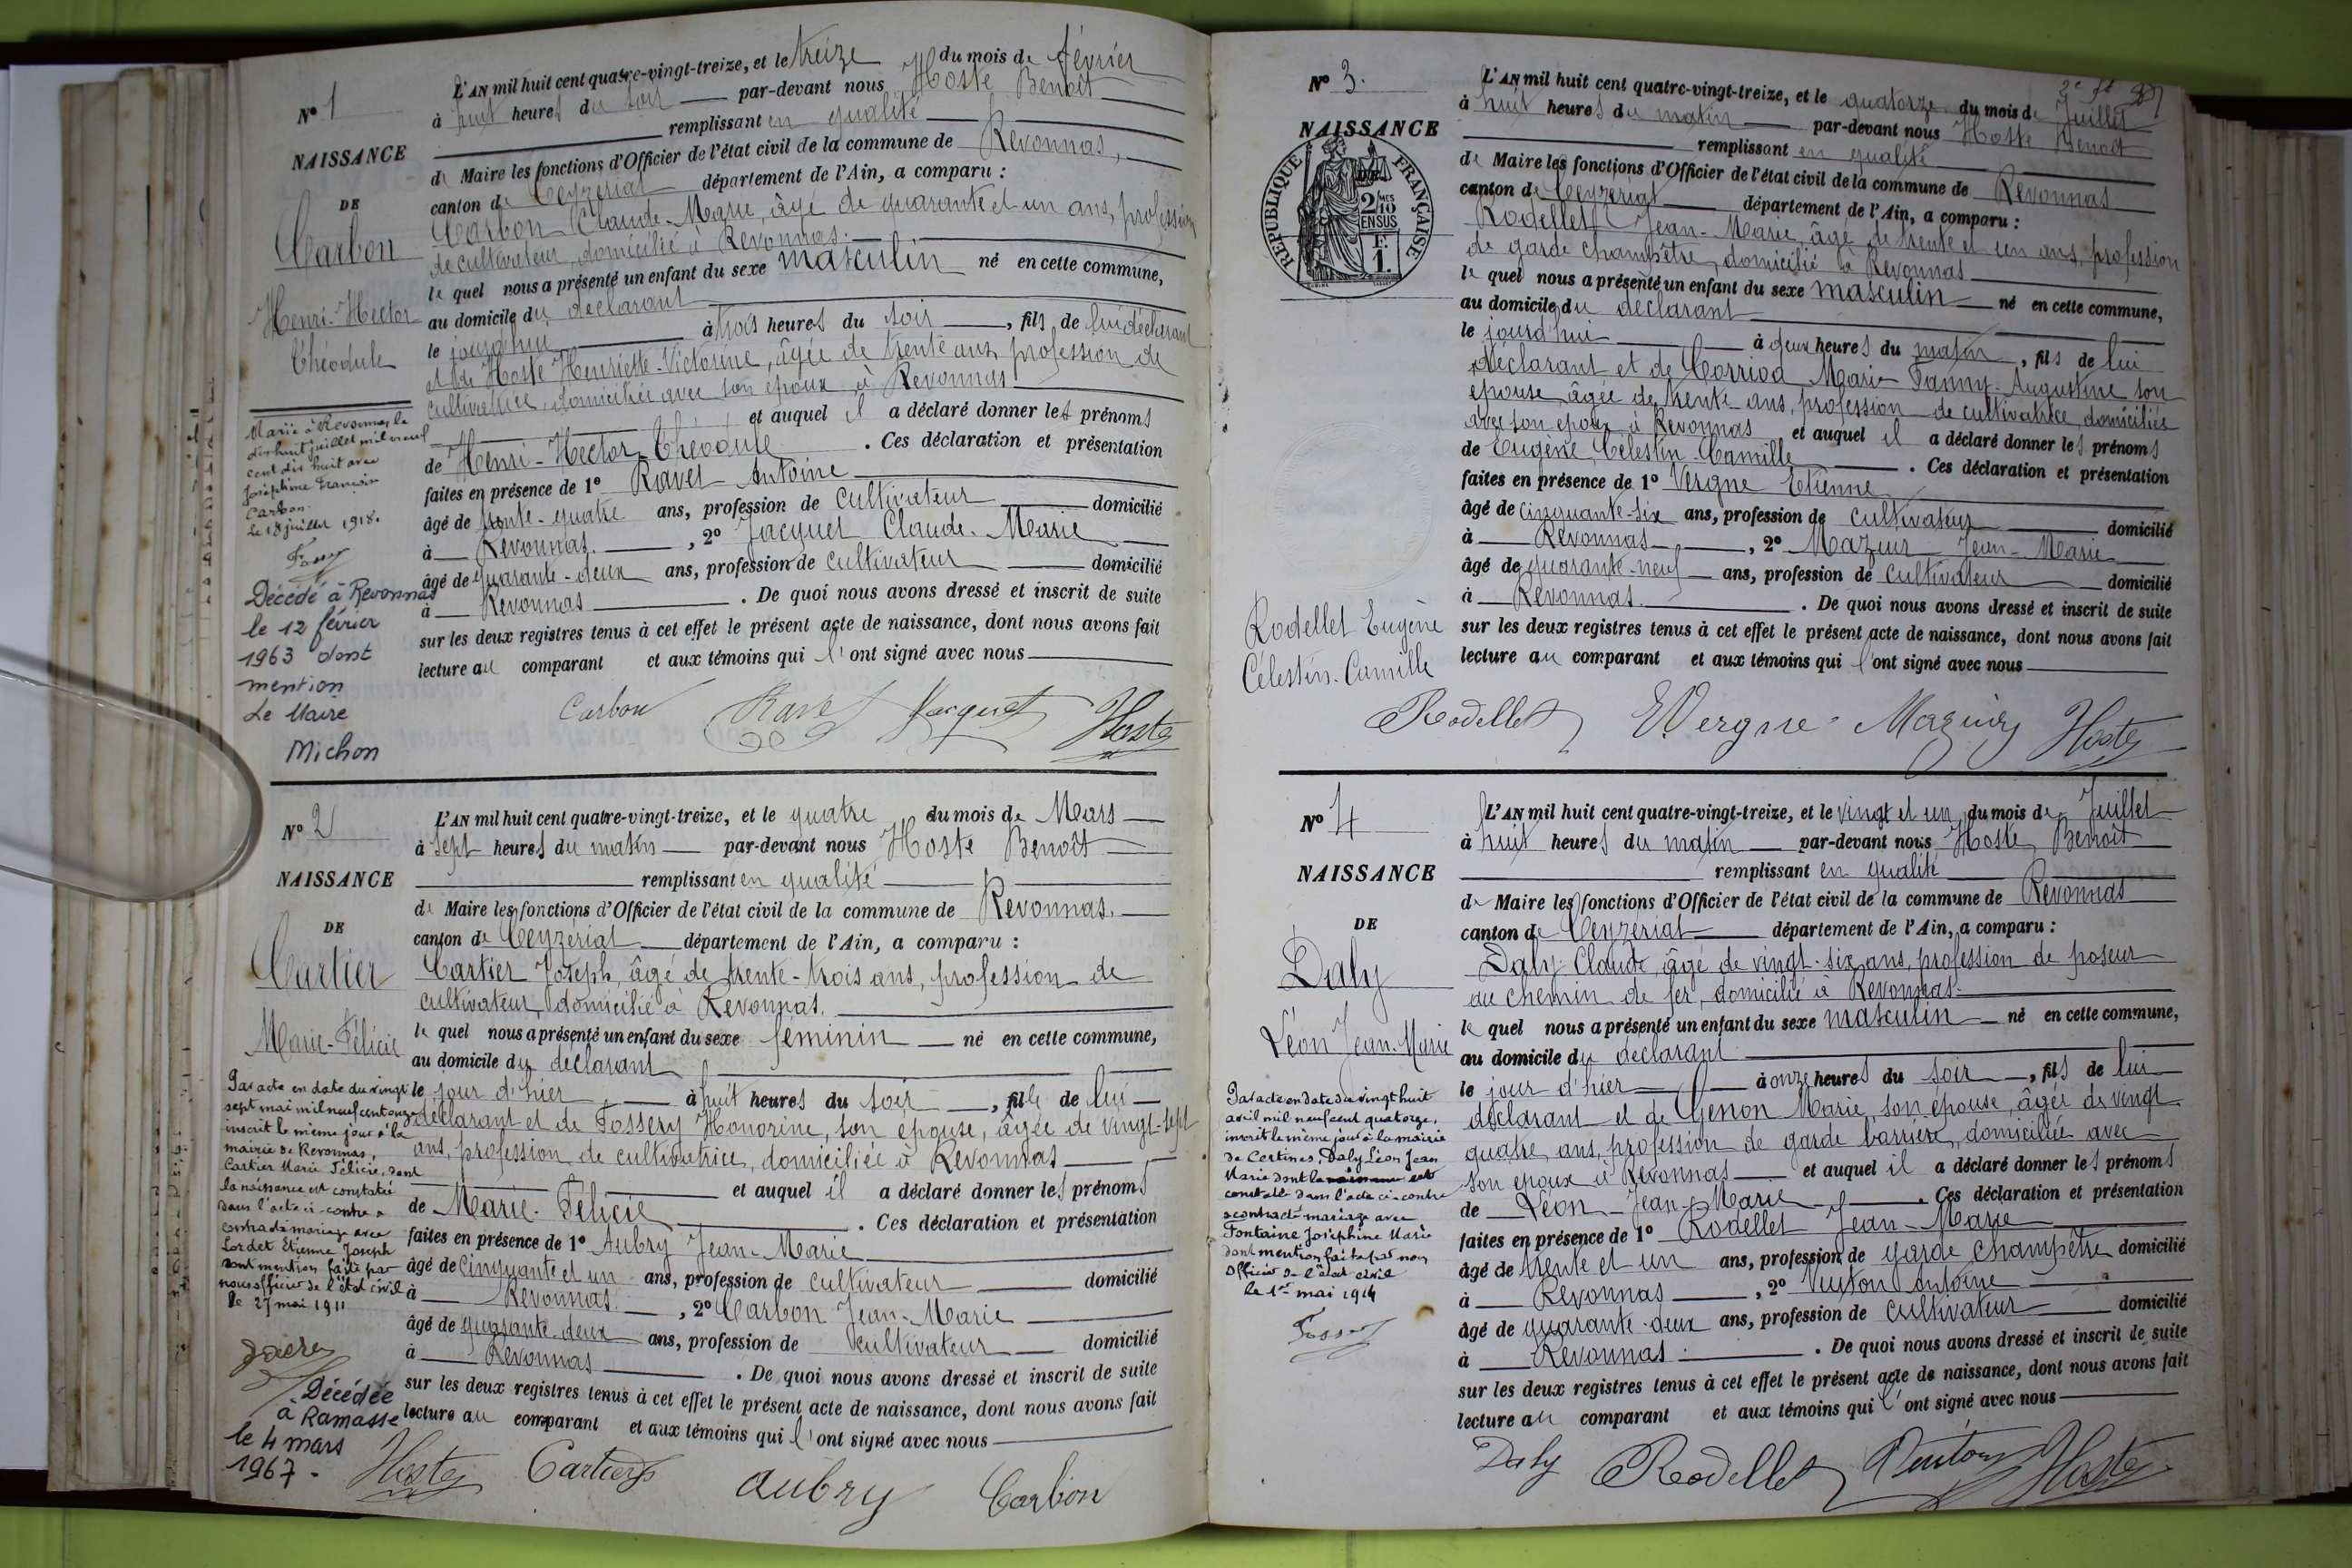 N° 1
NAISSANCE
DE
Carbon
Henri-Hector
Théodule
Marié à Revonnas le
dix huit juillet mil neuf
cent dix huit avec
Joséphine Françoise
Carbon.
Le 18 juillet 1918.
Décédé à Revonnas
le 12 février
1963 dont
mention
Le Maire
Michon
L'AN mil huit cent quatre-vingt-treize, et le treize du mois de février
à huit heures du soir par-devant nous Hoste Benoît
remplissant en qualité
de Maire les fonctions d'Officier de l'état civil de la commune de Revonnas,
canton de Ceyzériat département de l'Ain, a comparu :
Carbon Claude-Marie, âgé de quarante et un ans, profession
de cultivateur, domicilié à Revonnas.
le quel nous a présenté un enfant du sexe masculin né en cette commune,
au domicile du déclarant
le jourd'hui à trois heures du soir, fils de lui déclarant
et de Hoste Henriette-Victorine, âgée de trente ans, profession de
cultivatrice, domiciliée avec son époux à Revonnas
et auquel il a déclaré donner les prénoms
de Henri-Hector-Théodule. Ces déclaration et présentation
faites en présence de 1° Ravet Antoine
âgé de trente-quatre ans, profession de cultivateur domicilié
à Revonnas, 2° Jacquet Claude-Marie
âgé de quarante-deux ans, profession de cultivateur domicilié
à Revonnas. De quoi nous avons dressé et inscrit de suite
sur les deux registres tenus à cet effet le présent acte de naissance, dont nous avons fait
lecture au comparant et aux témoins qui l'ont signé avec nous
Carbon Ravet Jacquet Hoste
N° 2
NAISSANCE
DE
Cartier
Marie-Félicie
Par acte en date du vingt
sept mai mil neuf cent onze
inscrit le même jour à la
mairie de Revonnas,
Cartier Marie Félicie, dont
la naissance est constatée
dans l'acte ci-contre a
contracté mariage avec
Lordet Etienne Joseph
dont mention faite par
nous officier de l'état civil
le 27 mai 1911
Décédée
à Ramasse
le 4 mars
1967 -
L'AN mil huit cent quatre-vingt-treize, et le quatre du mois de Mars
à sept heures du matin par-devant nous Hoste Benoît
remplissant en qualité
de Maire les fonctions d'Officier de l'état civil de la commune de Revonnas.
canton de Ceyzériat département de l'Ain, a comparu :
Cartier Joseph, âgé de trente-trois ans, profession de
cultivateur, domicilié à Revonnas.
le quel nous a présenté un enfant du sexe féminin né en cette commune,
au domicile du déclarant
le jour d'hier à huit heures du soir, fille de lui
déclarant et de Fossery Honorine, son épouse, âgée de vingt-sept
ans, profession de cultivatrice, domiciliée à Revonnas
et auquel il a déclaré donner les prénoms
de Marie-Félicie. Ces déclaration et présentation
faites en présence de 1° Aubry Jean-Marie
âgé de cinquante et un ans, profession de cultivateur domicilié
à Revonnas, 2° Carbon Jean-Marie
âgé de quarante-deux ans, profession de cultivateur domicilié
à Revonnas. De quoi nous avons dressé et inscrit de suite
sur les deux registres tenus à cet effet le présent acte de naissance, dont nous avons fait
lecture au comparant et aux témoins qui l'ont signé avec nous
Hoste Cartier Aubry Carbon
N° 3.
NAISSANCE
RÉPUBLIQUE FRANÇAISE
2 MES
10
EN SUS
1F.
1.
Rodellet Eugène
Célestin-Camille
L'AN mil huit cent quatre-vingt-treize, et le quatorze du mois de Juillet
à huit heures du matin par-devant nous Hoste Benoît
remplissant en qualité
de Maire les fonctions d'Officier de l'état civil de la commune de Revonnas
canton de Ceyzériat département de l'Ain, a comparu :
Rodellet Jean-Marie, âgé de trente et un ans, profession
de garde champêtre, domicilié à Revonnas
le quel nous a présenté un enfant du sexe masculin né en cette commune,
au domicile du déclarant
le jourd'hui à deux heures du matin, fils de lui
déclarant et de Marie-Fanny-Augustine son
épouse âgée de trente ans, profession de cultivatrice, domiciliée
avec son époux à Revonnas et auquel il a déclaré donner les prénoms
de Eugène-Célestin-Camille. Ces déclaration et présentation
faites en présence de 1° Vergne Etienne
âgé de cinquante-six ans, profession de cultivateur domicilié
à Revonnas, 2° Mazuir Jean-Marie
âgé de quarante-neuf ans, profession de cultivateur domicilié
à Revonnas. De quoi nous avons dressé et inscrit de suite
sur les deux registres tenus à cet effet le présent acte de naissance, dont nous avons fait
lecture au comparant et aux témoins qui l'ont signé avec nous
Rodellet E. Vergne Mazuir Hoste
N° 4
NAISSANCE
DE
Daly
Léon Jean-Marie
Par acte en date du vingt huit
avril mil neuf cent quatorze,
inscrit le même jour à la mairie
de Certines, Daly Léon Jean
Marie dont la naissance est
constatée dans l'acte ci-contre
a contracté mariage avec
Fontaine Joséphine Marie
dont mention faite par nous
officier de l'état civil
le 1er mai 1914
L'AN mil huit cent quatre-vingt-treize, et le vingt et un du mois de Juillet
à huit heures du matin par-devant nous Hoste Benoît
remplissant en qualité
de Maire les fonctions d'Officier de l'état civil de la commune de Revonnas
canton de Ceyzériat département de l'Ain, a comparu :
Daly Claude âgé de vingt-six ans, profession de poseur
au chemin de fer, domicilié à Revonnas.
le quel nous a présenté un enfant du sexe masculin né en cette commune,
au domicile du déclarant
le jour d'hier à onze heures du soir, fils de lui
déclarant et de Genon Marie, son épouse, âgée de vingt
quatre ans, profession de garde barrière, domiciliée avec
son époux à Revonnas et auquel il a déclaré donner les prénoms
de Léon-Jean-Marie. Ces déclaration et présentation
faites en présence de 1° Rodellet Jean-Marie
âgé de trente et un ans, profession de garde champêtre domicilié
à Revonnas, 2° Antoine
âgé de quarante-deux ans, profession de cultivateur domicilié
à Revonnas. De quoi nous avons dressé et inscrit de suite
sur les deux registres tenus à cet effet le présent acte de naissance, dont nous avons fait
lecture au comparant et aux témoins qui l'ont signé avec nous
Daly Rodellet Hoste